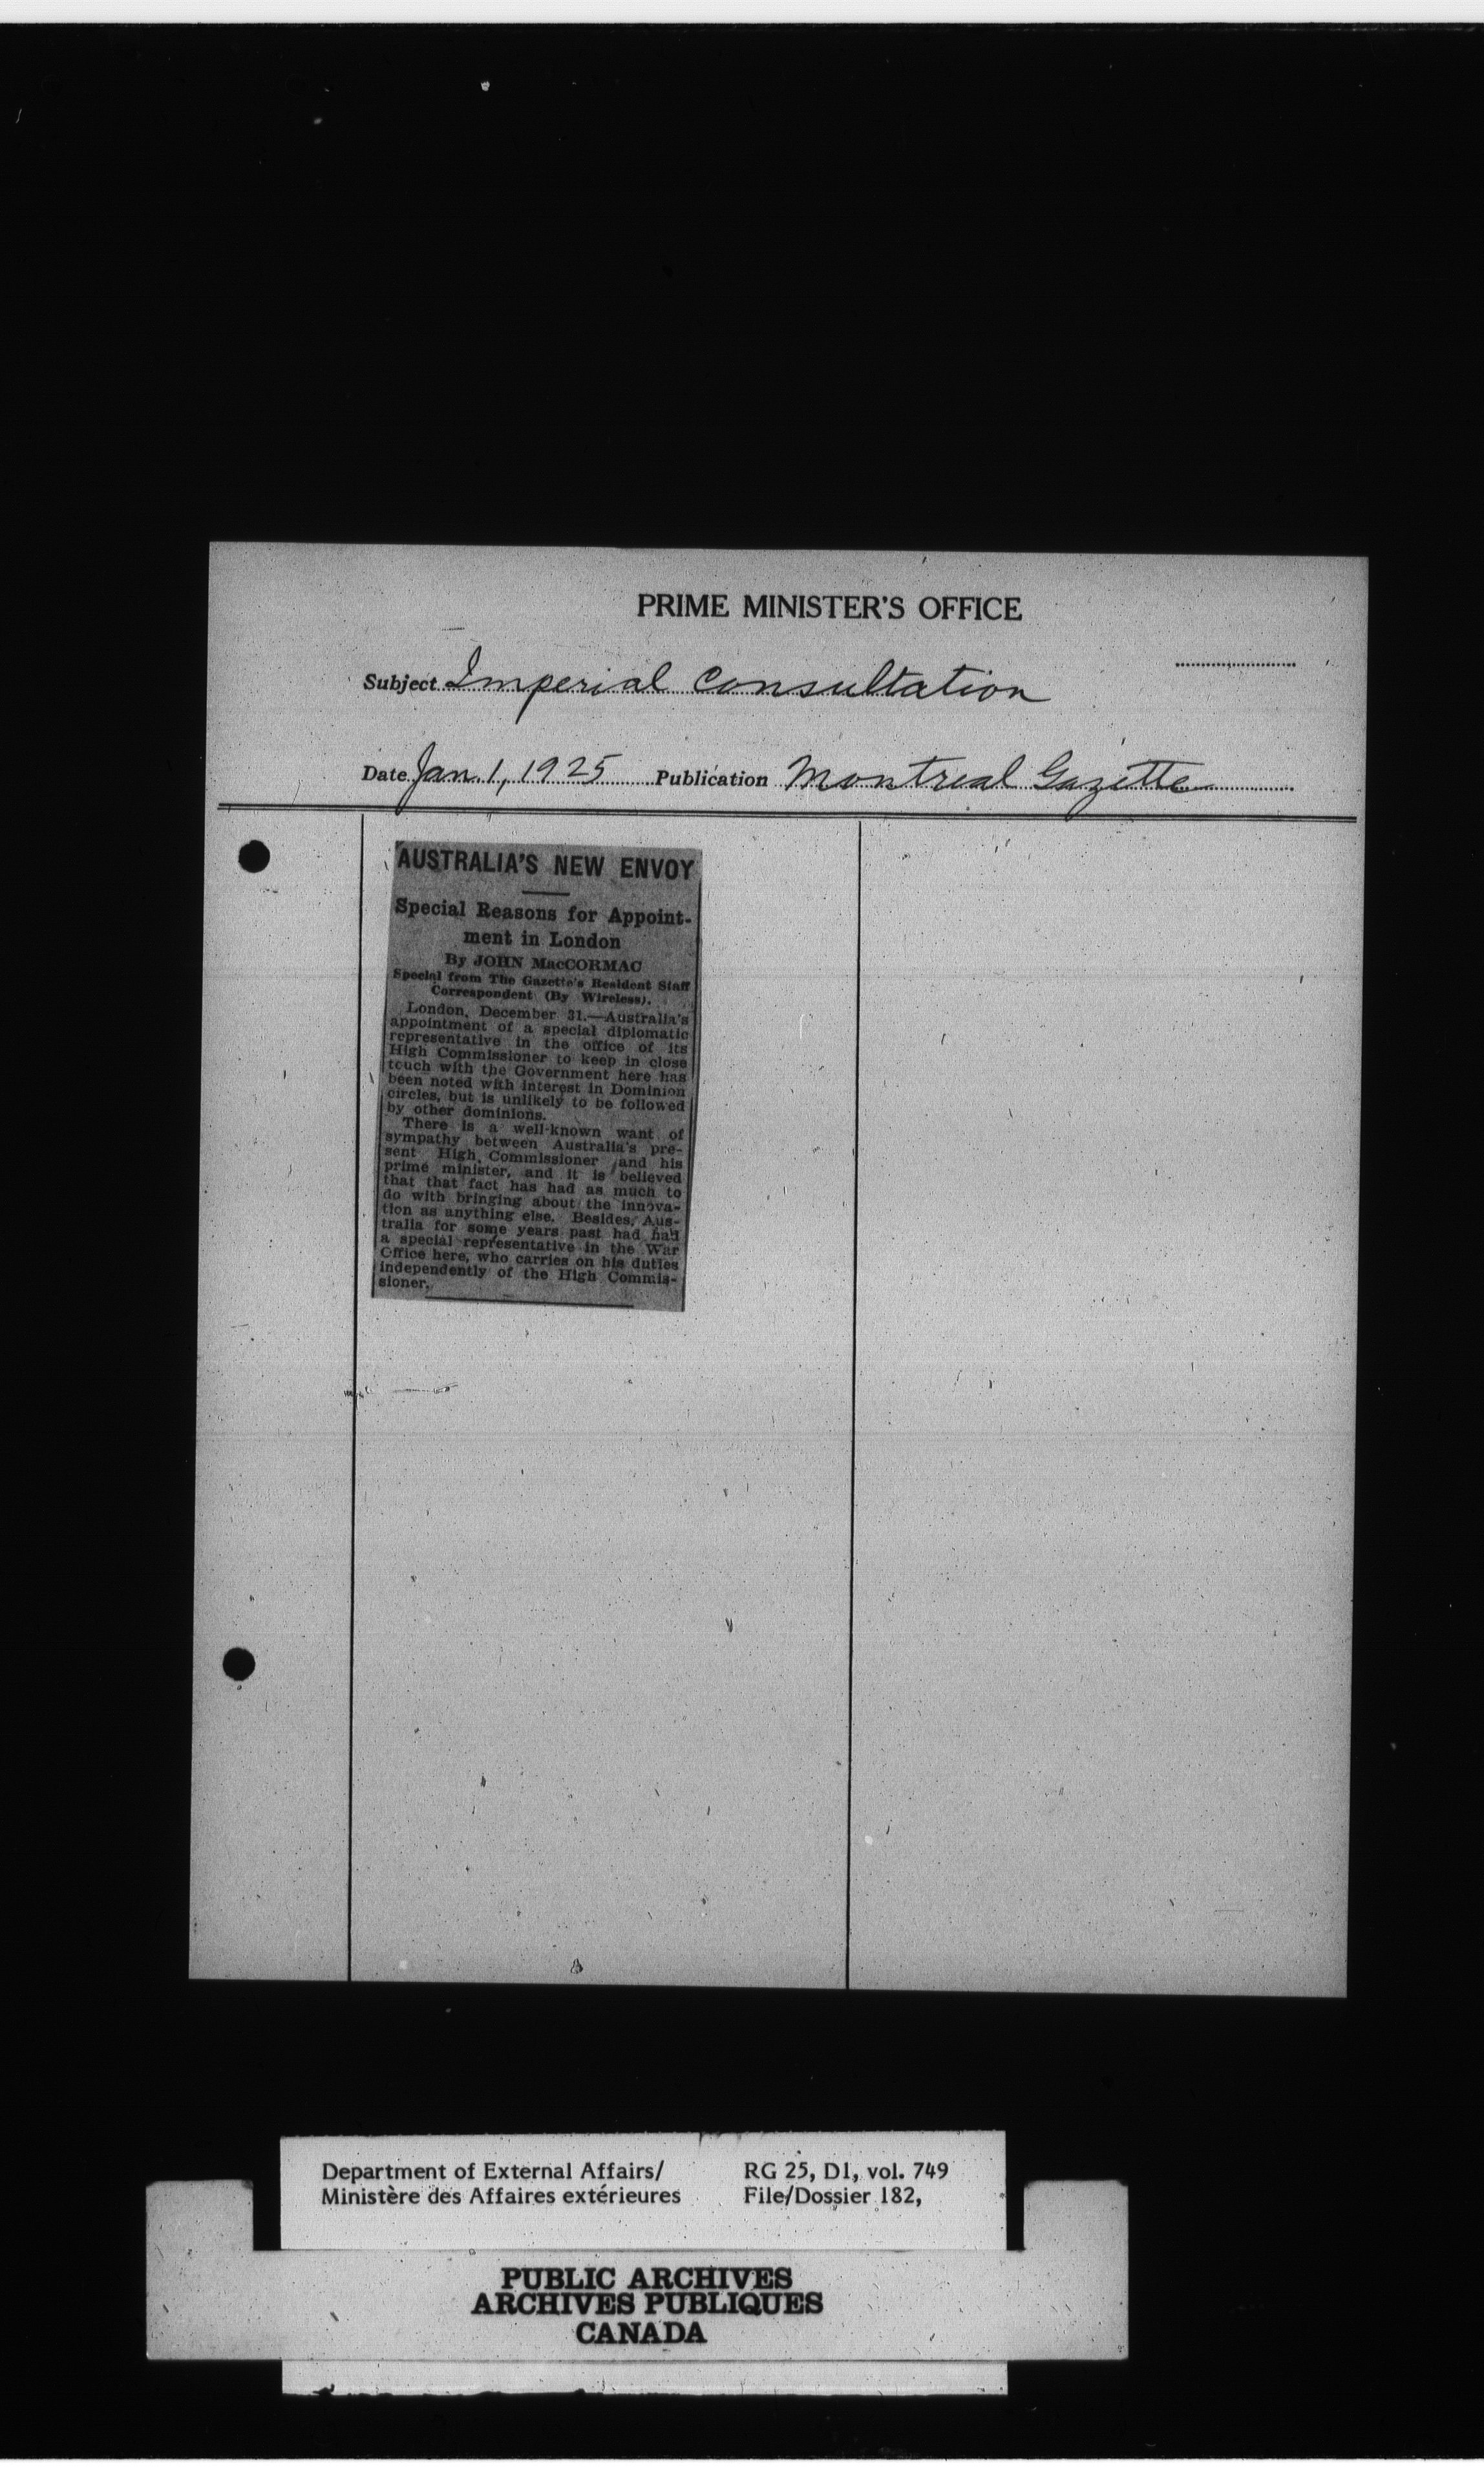 PRIME MINISTER'S OFFICE
Subject Imperial Consultation
Date Jan. 1, 1925 Publication Montreal Gazette
AUSTRALIA'S NEW ENVOY
Special Reasons for Appoint-
ment in London
By JOHN MacCORMAC
Special from The Gazette's Resident Staff
Correspondent (By Wireless).
London, December 31.—Australia's
appointment of a special diplomatic
representative in the office of its
High Commissioner to keep in close
touch with the Government here has
been noted with interest in Dominion
circles, but is unlikely to be followed
by other dominions.
There is a well-known want of
sympathy between Australia's pre-
sent High Commissioner and his
prime minister, and it is believed
that that fact has had as much to
do with bringing about the innova-
tion as anything else. Besides, Aus-
tralia for some years past had had
a special representative in the War
Office here, who carries on his duties
independently of the High Commis-
sioner.
Department of External Affairs/
Ministère des Affaires extérieures
RG 25, D1, vol. 749
File/Dossier 182,
PUBLIC ARCHIVES
ARCHIVES PUBLIQUES
CANADA